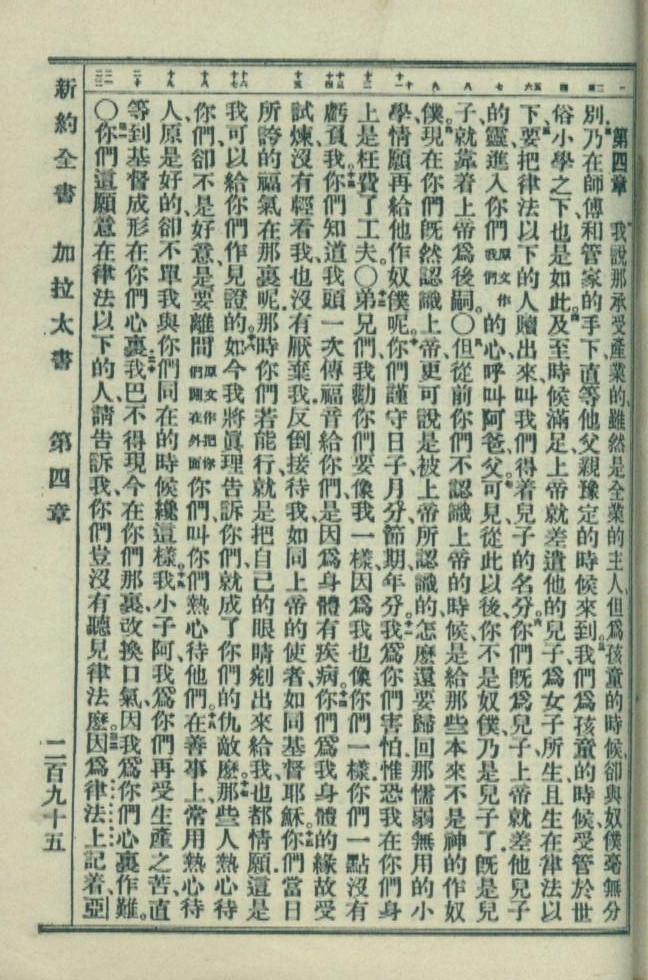 第四章 我說那承受產業的、雖然是全業的主人、但爲孩童的時候、卻與奴僕毫無分
別、乃在師傅和管家的手下、直等他父親豫定的時候來到。我們爲孩童的時候、受管於世
俗小學之下、也是如此。及至時候滿足、上帝就差遣他的兒子、爲女子所生、且生在律法以
下、要把律法以下的人贖出來、叫我們得着兒子的名分。你們旣爲兒子、上帝就差他兒子
的靈、進入你們原文作我們的心、呼叫阿爸、父。可見從此以後、你不是奴僕、乃是兒子了、旣是兒
子、就靠着上帝爲後嗣。〇但從前你們不認識上帝的時候、是給那些本來不是神的作奴
僕。現在你們旣然認識上帝、更可說是被上帝所認識的、怎麽還要歸回那懦弱無用的小
學、情願再給他作奴僕呢。你們謹守日子、月分、節期、年分。我爲你們害怕、惟恐我在你們身
上是枉費了工夫。〇弟兄們、我勸你們要像我一樣、因爲我也像你們一樣、你們一點沒有
虧負我。你們知道我頭一次傳福音給你們、是因爲身體有疾病。你們爲我身體的緣故受
試煉、沒有輕看我、也沒有厭棄我、反倒接待我、如同上帝的使者、如同基督耶穌。你們當日
所誇的福氣在那裏呢、那時你們若能行、就是把自己的眼睛剜出來給我、也都情願、這是
我可以給你們作見證的。如今我將眞理告訴你們、就成了你們的仇敵麽。那些人熱心待
你們、卻不是好意、是要離間原文作把你們關在外面你們、叫你們熱心待他們。在善事上、常用熱心待
人、原是好的、卻不單我與你們同在的時候、纔這樣。我小子阿、我爲你們再受生產之苦、直
等到基督成形在你們心裏。我巴不得現今在你們那裏、改換口氣、因我爲你們心裏作難。
〇你們這願意在律法以下的人、請告訴我、你們豈沒有聽見律法麽。因爲律法上記着、亞
新約全書 加拉太書 第四章 二百九十五